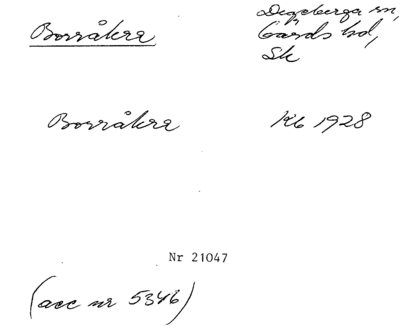 Borråkra
Degeberga sn,
Gärds hd,
Sk
Borråkra
Kb 1928
Nr 21047
(acc nr 5346)